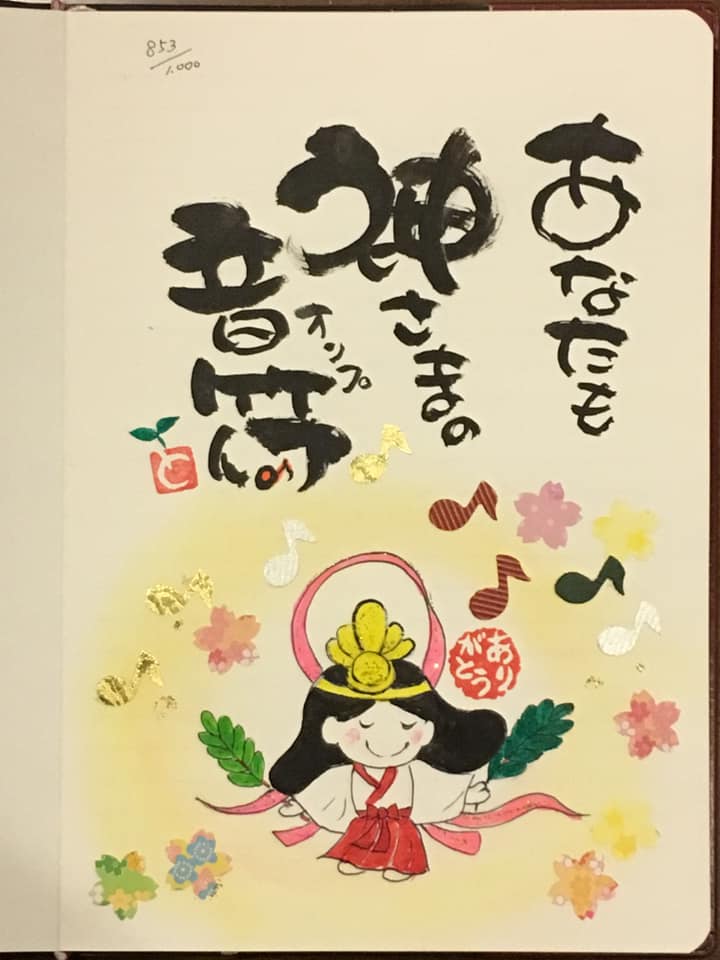 853/1.000
あなたも
神さまの
音符
オンプ
と
ありがとう